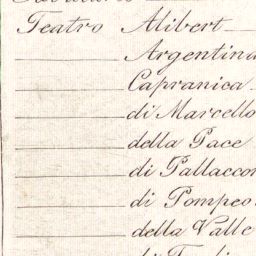 Teatro Alibert
Argentina
Capranica
di Marcello
della Pace
di Pallaccor
di Pompeo
della Valle